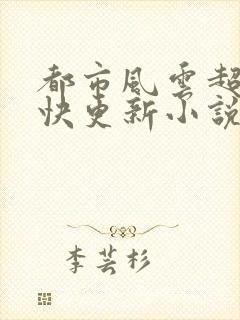 都市風雲超
快更新小說
李芸杉